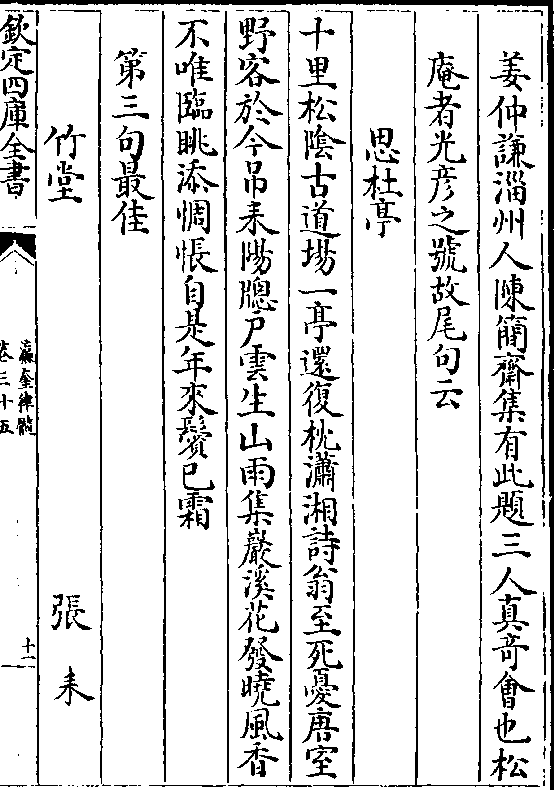 姜仲謙淄州人陳簡齋集有此題三人真竒㑹也松
庵者光彦之號故尾句云
思杜亭
十里松隂古道場一亭還復枕瀟湘詩翁至死憂唐室
野客於今吊耒陽牕户雲生山雨集巖溪花發曉風香
不唯臨眺添惆悵自是年來鬢已霜
第三句最佳
竹堂 張耒
欽定四庫全書
瀛奎律髓
卷三十五
十一